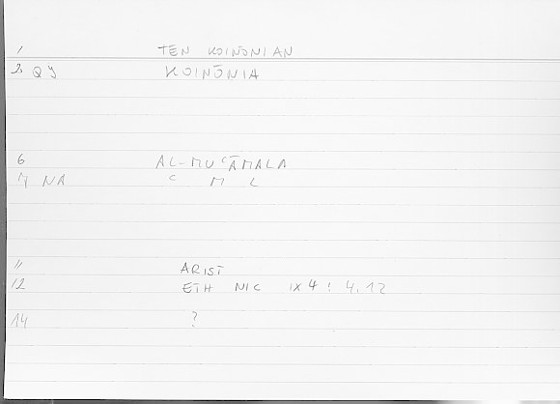 1 TEN KOINŌNIAN
2. QY KOINŌNIA
6 AL-MUᶜĀMALA
7 NA ᶜ M L
11 ARIST
12 ETH NIC IX 4 : 4.12
14 ?